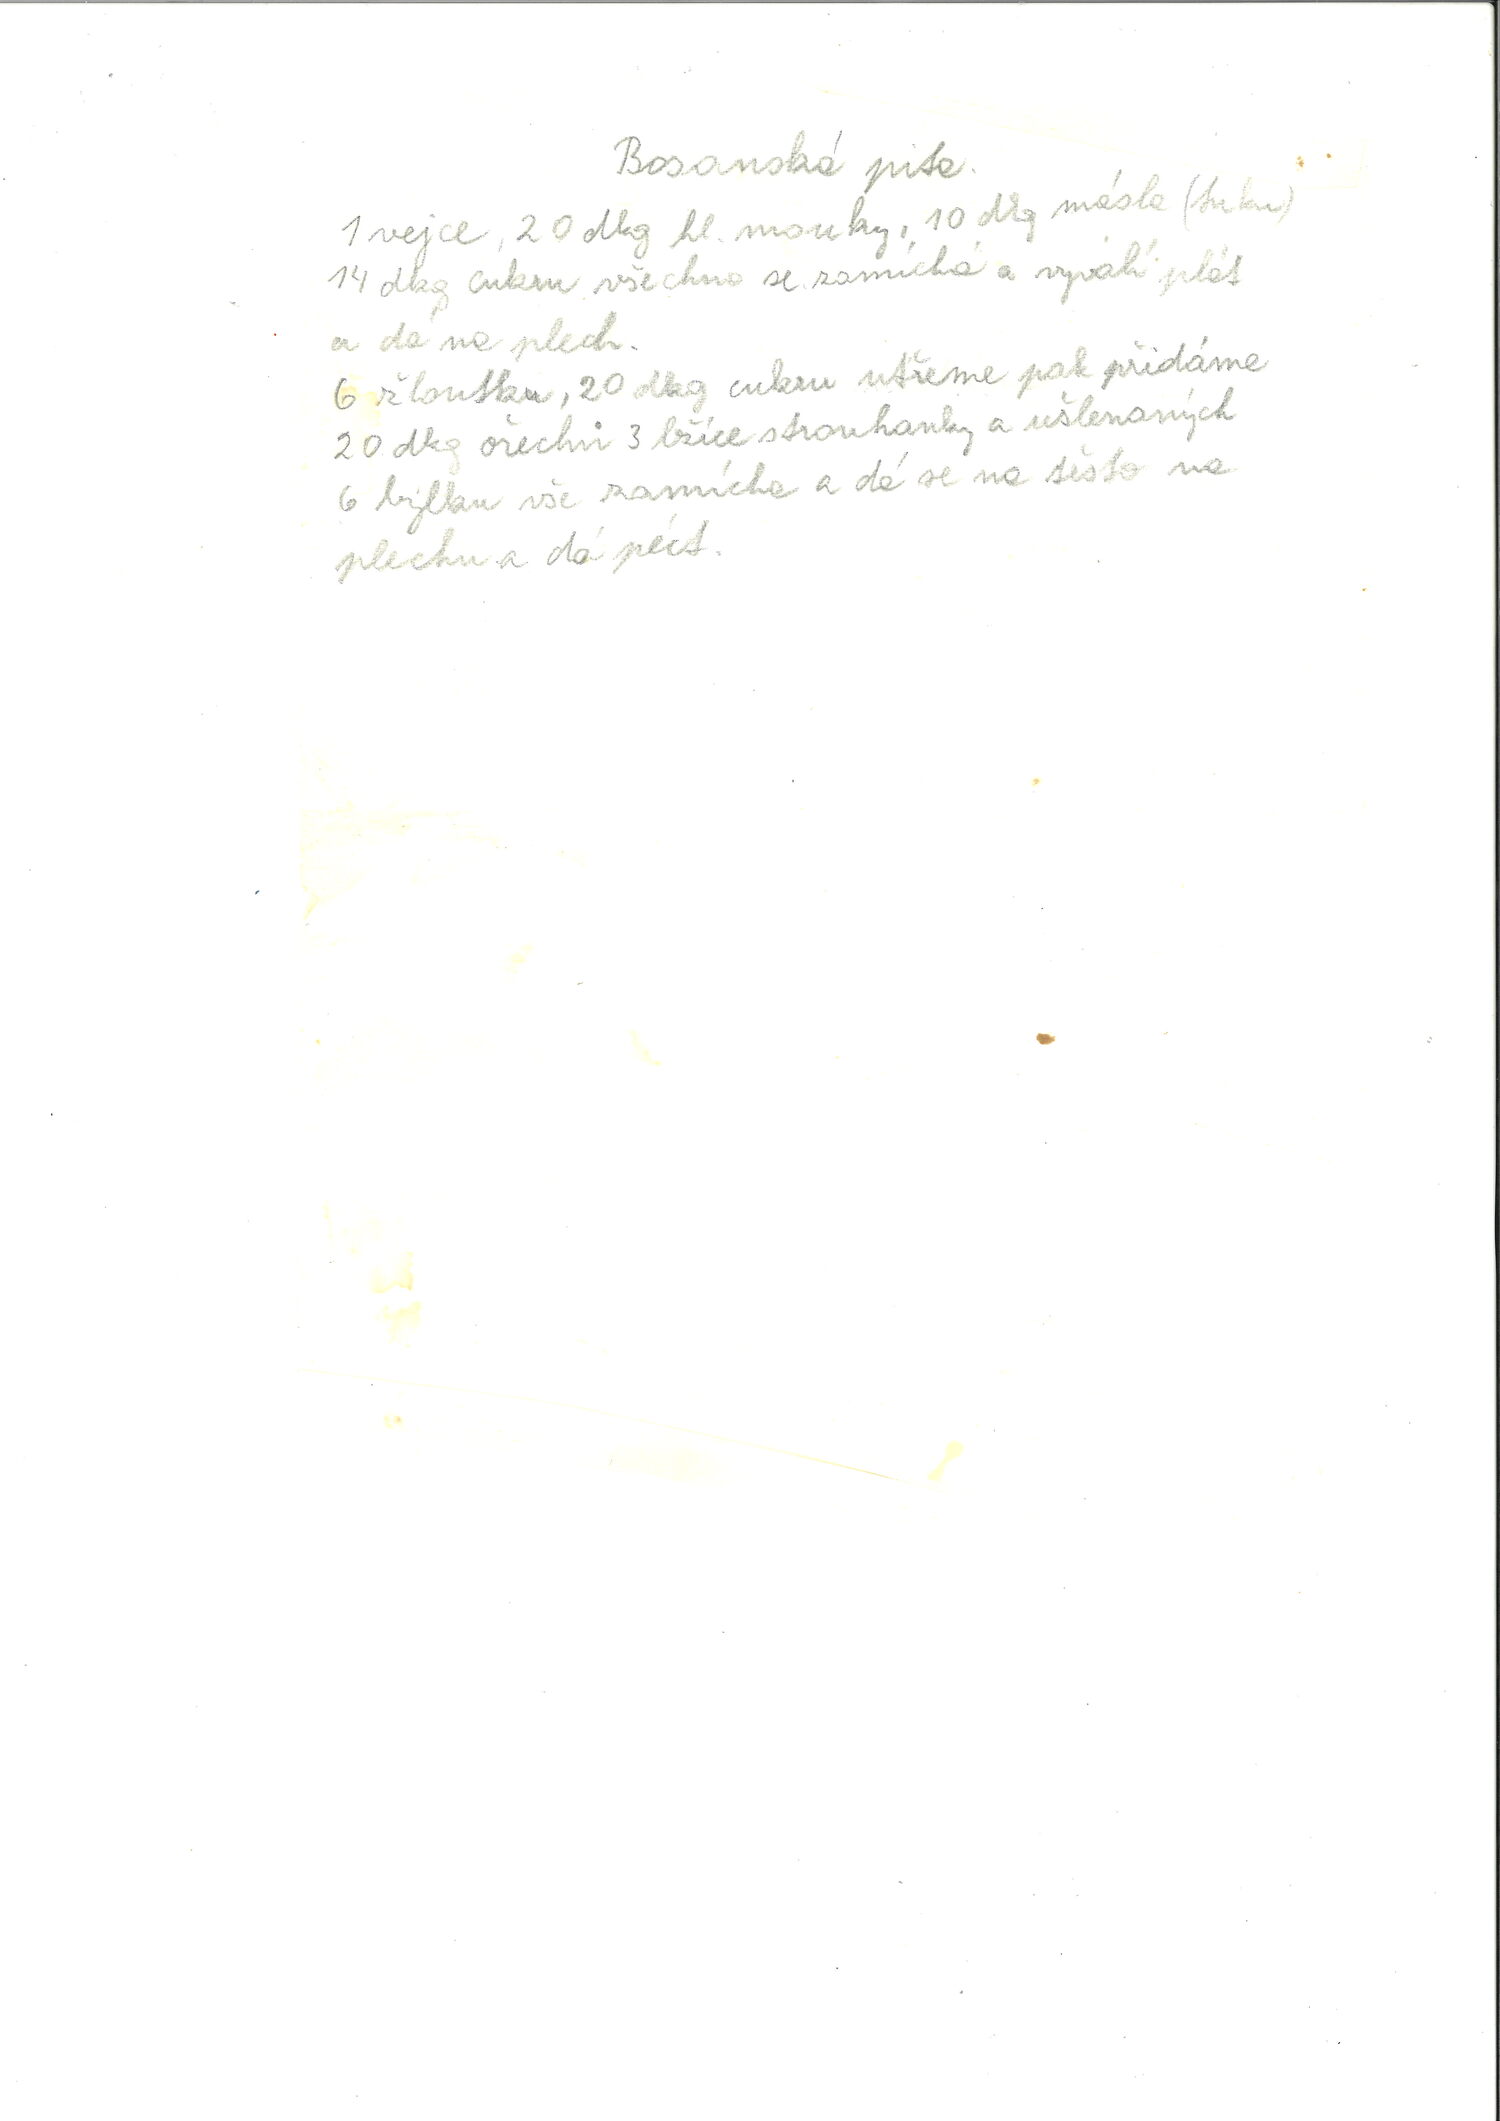 Bosanská pita.
1 vejce, 20 dkg hl. mouky, 10 dkg másla (tuku)
14 dkg cukru všechno se zamíchá a vyválí plát
a dá na plech.
6 žloutku, 20 dkg cukru utřeme pak přidáme
20 dkg ořechů 3 lžíce strouhanky a ušlenaných
6 bílku vše zamícha a dá se na těsto na
plechu a dá péct.